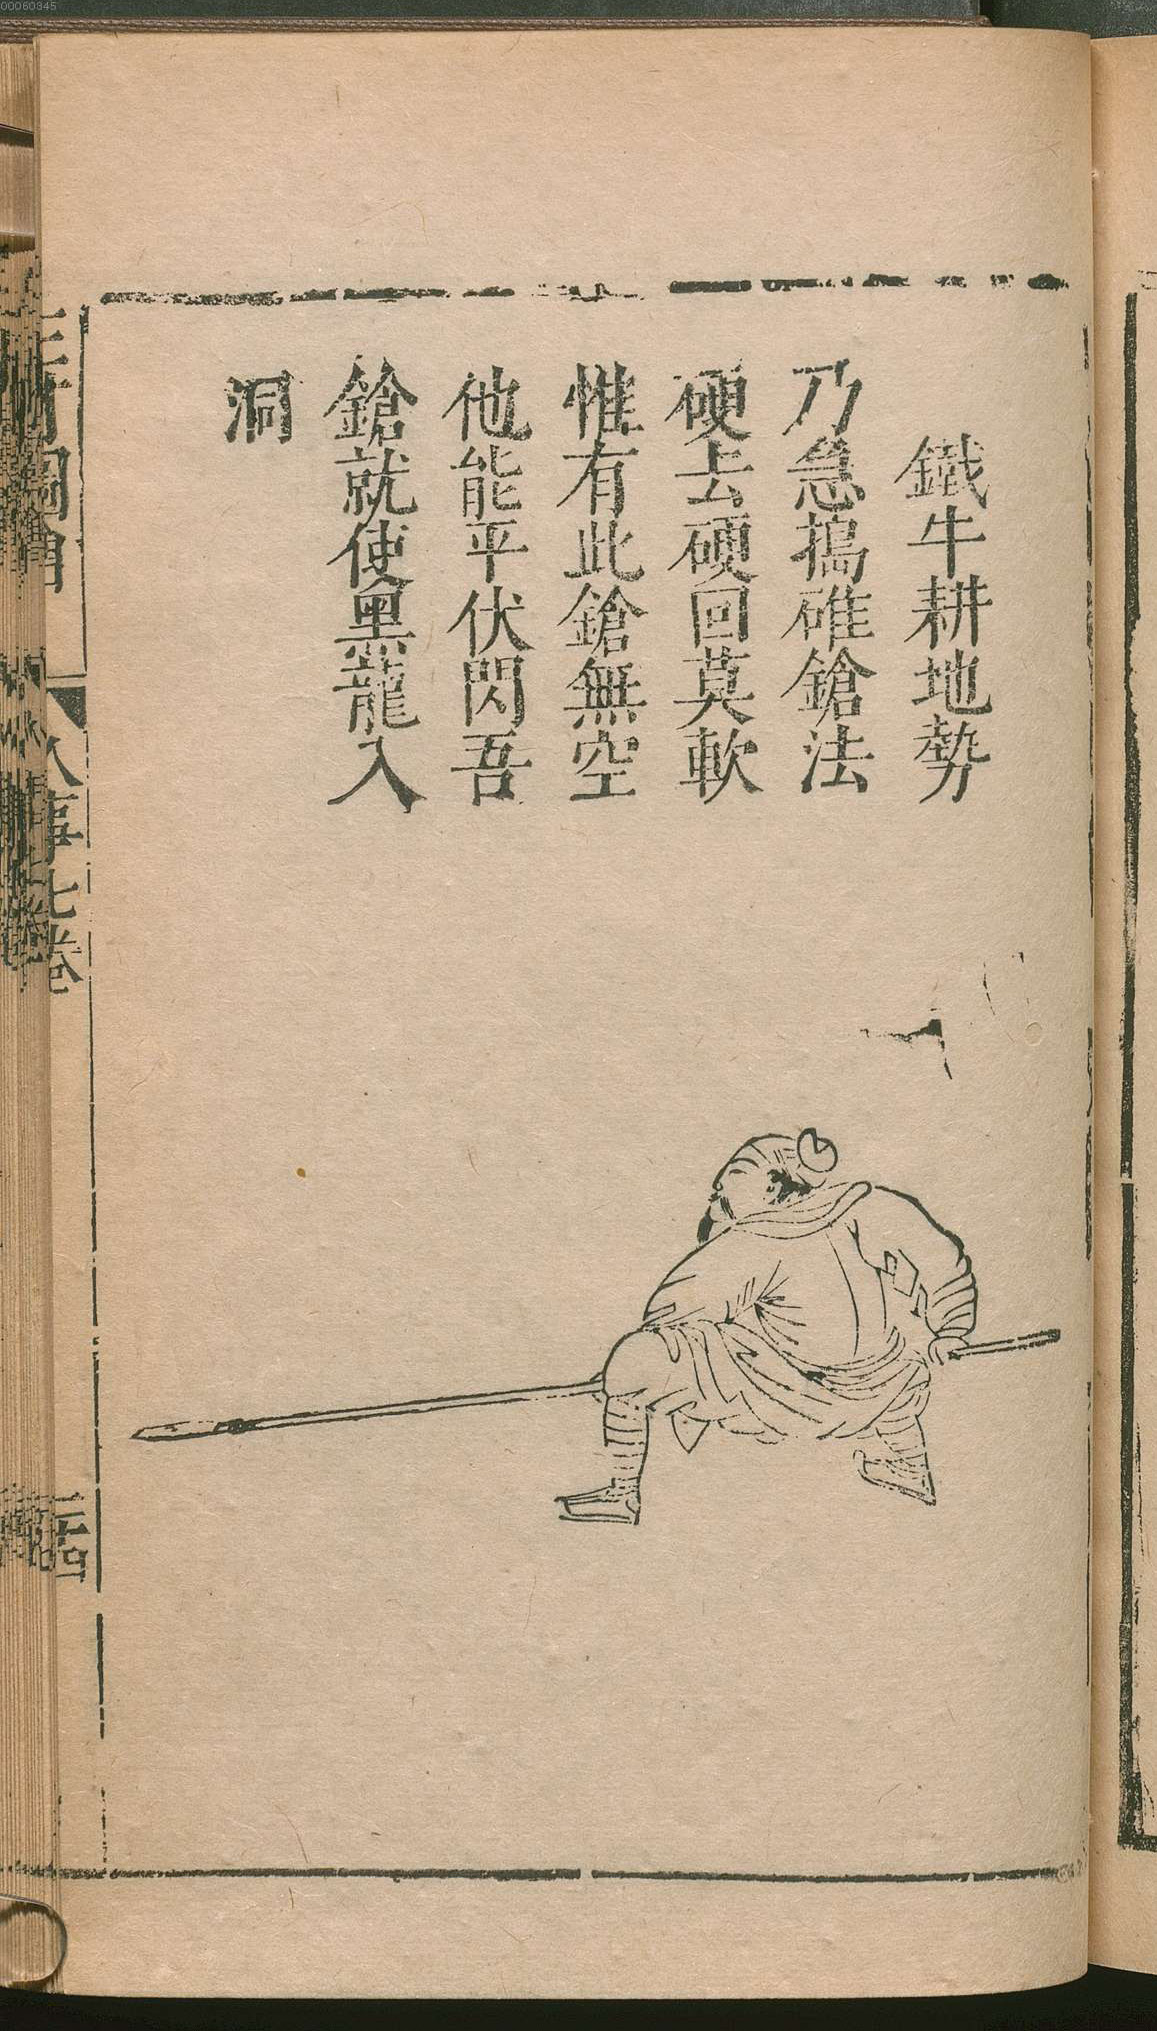 鐵牛耕地勢
乃急搗碓鎗法
硬去硬回莫軟
惟有此鎗無空
他能平伏閃吾
鎗就使黑龍入
洞
人事七卷
00060345